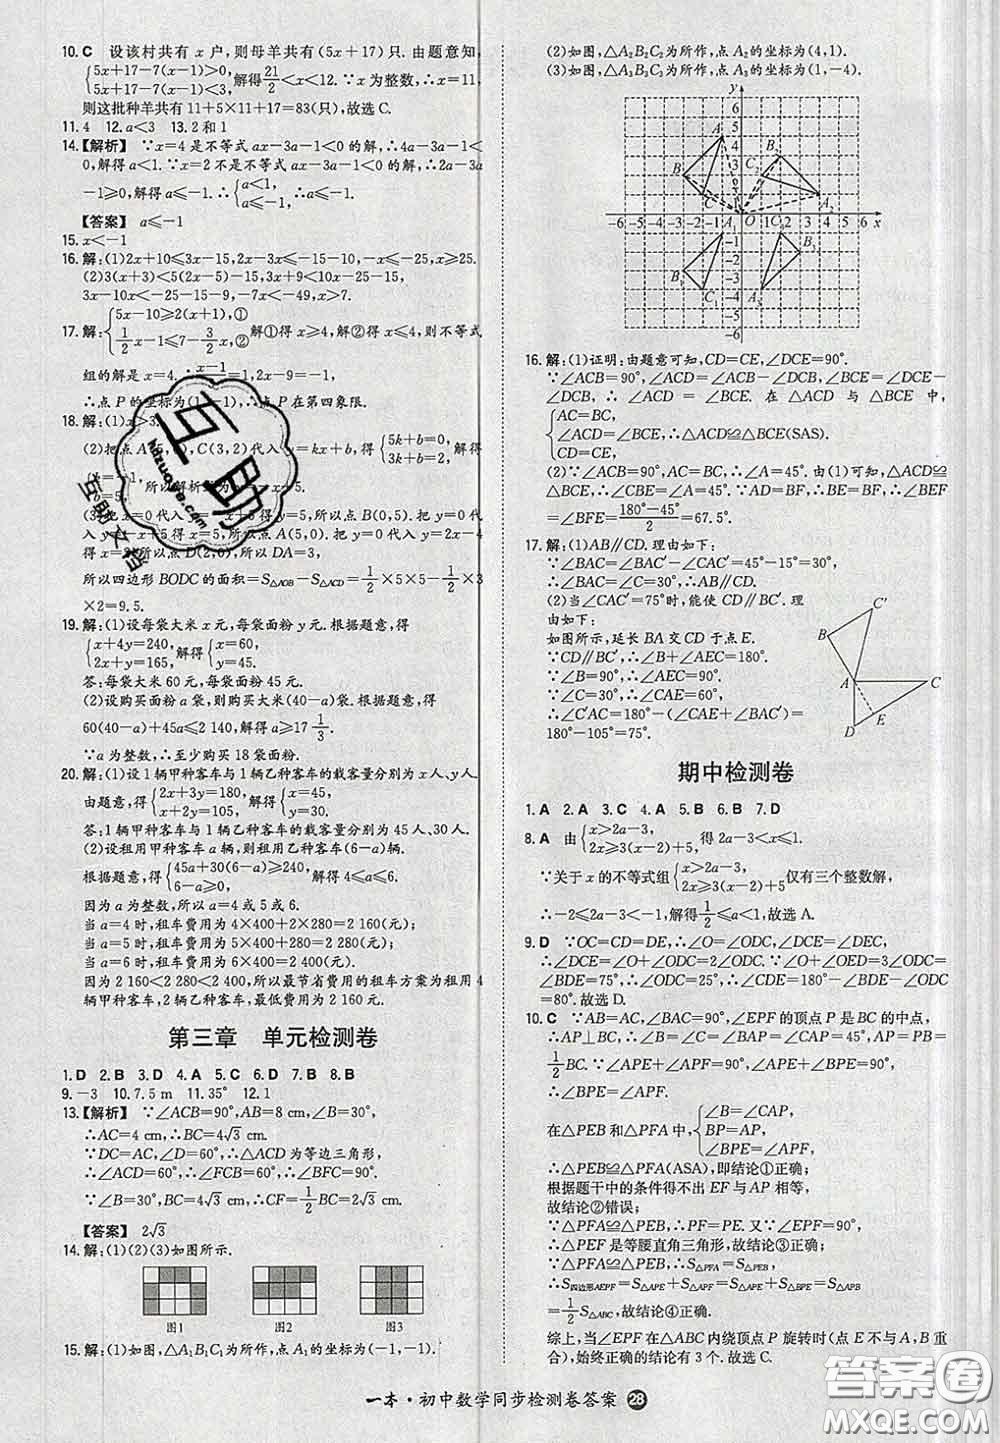 10. C 设该村共有 x 户,则母羊共有(5x+17)只. 由题意知,
{5x+17-7(x-1)>0,
5x+17-7(x-1)<3, 解得21/2<x<12. ∵x 为整数,∴x=11,
则这批种羊共有 11+5×11+17=83(只),故选 C.
11. 4 12. a<3 13. 2 和 1
14.【解析】 ∵x=4 是不等式 ax-3a-1<0 的解,∴4a-3a-1<
0,解得 a<1. ∵x=2 不是不等式 ax-3a-1<0 的解,∴2a-3a
-1⩾0,解得 a⩽-1. ∴{a<1, a⩽-1. ∴a⩽-1.
【答案】 a⩽-1
15. x<-1
16. 解:(1)2x+10⩽3x-15,2x-3x⩽-15-10,-x⩽-25,x⩾25.
(2)3(x-3)<5(2x-5)-15,3x-9<10x-25-15,
3x-10x<-25-15+9,-7x<-31,
17. 解:{5x-10⩾2(x+1),①
1/2x-1⩽7-3/2x,② 解①得 x⩾4,解②得 x⩽4,则不等式
组的解是 x=4,
∴点 P 的坐标为(1,-1),∴点 P 在第四象限.
18. 解:(1)x>3.
(2)把点 A(5,0),C(3,2)代入 y=kx+b,得{5k+b=0,
3k+b=2,
(3)把 x=0 代入 y=-x+5 得 y=5,所以点 B(0,5). 把 y=0 代
所以四边形 BODC 的面积=S△AOB-S△ACD=1/2×5×5-1/2×3
×2=9.5.
19. 解:(1)设每袋大米 x 元,每袋面粉 y 元. 根据题意,得
{x+4y=240,
2x+y=165, 解得{x=60,
y=45.
答:每袋大米 60 元,每袋面粉 45 元.
(2)设购买面粉 a 袋,则购买大米(40-a)袋. 根据题意,得
60(40-a)+45a⩽2 140,解得 a⩾17 1/3.
∵a 为整数,∴至少购买 18 袋面粉.
20. 解:(1)设 1 辆甲种客车与 1 辆乙种客车的载客量分别为 x人、y人.
由题意,得{2x+3y=180,
x+2y=105, 解得{x=45,
y=30.
答:1 辆甲种客车与 1 辆乙种客车的载客量分别为 45 人、30 人.
(2)设租用甲种客车 a 辆,则租用乙种客车(6-a)辆.
根据题意,得{45a+30(6-a)⩾240,
6-a>0, 解得 4⩽a<6.
因为 a 为整数,所以 a=4 或 5
当 a=4 时,租车费用为 4×400+2×280=2 160(元);
当 a=5 时,租车费用为 5×400+280=2 280(元);
因为 2 160<2 280
甲种客车,2 辆乙种客车,最低费用为 2 160 元.
第三章 单元检测卷
1. D 2. B 3. D 4. A 5. C 6. D 7. B 8. B
9. -3 10. 7.5 m 11. 35° 12. 1
13.【解析】 ∵∠ACB=90°,AB=8 cm,∠B=30°,
∴AC=4 cm,∴BC=4√3 cm.
∵DC=AC,∠D=60°,∴△ACD 为等边三角形,
∴∠ACD=60°,∴∠FCB=60°,∴∠BFC=90°.
∵∠B=30°,BC=4√3 cm,∴CF=1/2BC=2√3 cm.
【答案】 2√3
14. 解:(1)(2)(3)如图所示.
图1 图2 图3
15. 解:(1)如图,△A₁B₁C₁为所作,点 A₁的坐标为(-1,-1).
(2)如图,△A₂B₂C₂为所作,点 A₂的坐标为(4,1).
(3)如图,△A₃B₃C₃为所作,点 A₃的坐标为(1,-4).
16. 解:(1)证明:由题意可知,CD=CE,∠DCE=90°.
∵∠ACB=90°,∴∠ACD=∠ACB-∠DCB,∠BCE=∠DCE-
∠DCB,∴∠ACD=∠BCE. 在△ACD 与△BCE 中,
{AC=BC,
∠ACD=∠BCE,∴△ACD≌△BCE(SAS).
CD=CE,
(2)∵∠ACB=90°,AC=BC,∴∠A=45°. 由(1)可知,△ACD≌
△BCE,∴∠CBE=∠A=45°. ∵AD=BF,∴BE=BF,∴∠BEF
=∠BFE=(180°-45°)/2=67.5°.
17. 解:(1)AB∥CD. 理由如下:
∵∠BAC=∠BAC′-∠CAC′=45°-15°=30°,
∴∠BAC=∠C=30°,∴AB∥CD.
(2)当∠CAC′=75°时,能使 CD∥BC′. 理
由如下:
如图所示,延长 BA 交 CD 于点 E.
∵CD∥BC′,∴∠B+∠AEC=180°.
∵∠B=90°,∴∠AEC=90°.
∵∠C=30°,∴∠CAE=60°,
∴∠C′AC=180°-(∠CAE+∠BAC′)=
180°-105°=75°.
期中检测卷
1. A 2. A 3. C 4. A 5. B 6. B 7. D
8. A 由{x>2a-3,
2x⩾3(x-2)+5, 得 2a-3<x⩽1.
∵关于 x 的不等式组{x>2a-3,
2x⩾3(x-2)+5 仅有三个整数解,
∴-2⩽2a-3<-1,解得1/2⩽a<1,故选 A.
9. D ∵OC=CD=DE,∴∠O=∠ODC,∠DCE=∠DEC,
∴∠DCE=∠O+∠ODC=2∠ODC. ∵∠O+∠OED=3∠ODC
=∠BDE=75°,∴∠ODC=25°,∴∠CDE=180°-∠BDE-∠ODC
=80°. 故选 D.
10. C ∵AB=AC,∠BAC=90°,∠EPF 的顶点 P 是 BC 的中点,
∴AP⊥BC,∴AP=1/2BC=PB,∠B=∠CAP=45°,∠BAP=
1/2∠BAC=45°. ∵∠APF+∠APE=90°,∠APE+∠BPE=90°,
∴∠BPE=∠APF.
在△PEB 和△PFA 中,{∠B=∠CAP,
BP=AP,
∠BPE=∠APF,
∴△PEB≌△PFA(ASA),即结论①正确;
根据题干中的条件得不出 EF 与 AP 相等,
故结论②错误;
∵△PFA≌△PEB,∴PF=PE. 又∵∠EPF=90°,
∴△PEF 是等腰直角三角形,故结论③正确;
∵△PFA≌△PEB,∴S△PFA=S△PEB,
∴S四边形AEPF=S△APE+S△APF=S△APE+S△BPE=S△APB
=1/2S△ABC,故结论④正确;
综上,当∠EPF 在△ABC 内绕顶点 P 旋转时(点 E 不与 A、B 重
合),始终正确的结论有 3 个. 故选 C.
一本·初中数学同步检测卷答案 28
答案圈
MXQE.COM